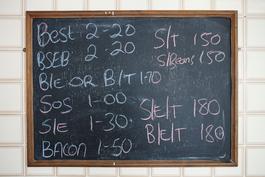 Best 2-20
BSEB 2-20
B/E OR B/T 1-70
Sos 1-00
S/E 1-30
BACON 1-50
S/T 150
S/Beans 150
S/E/T 180
B/E/T 180